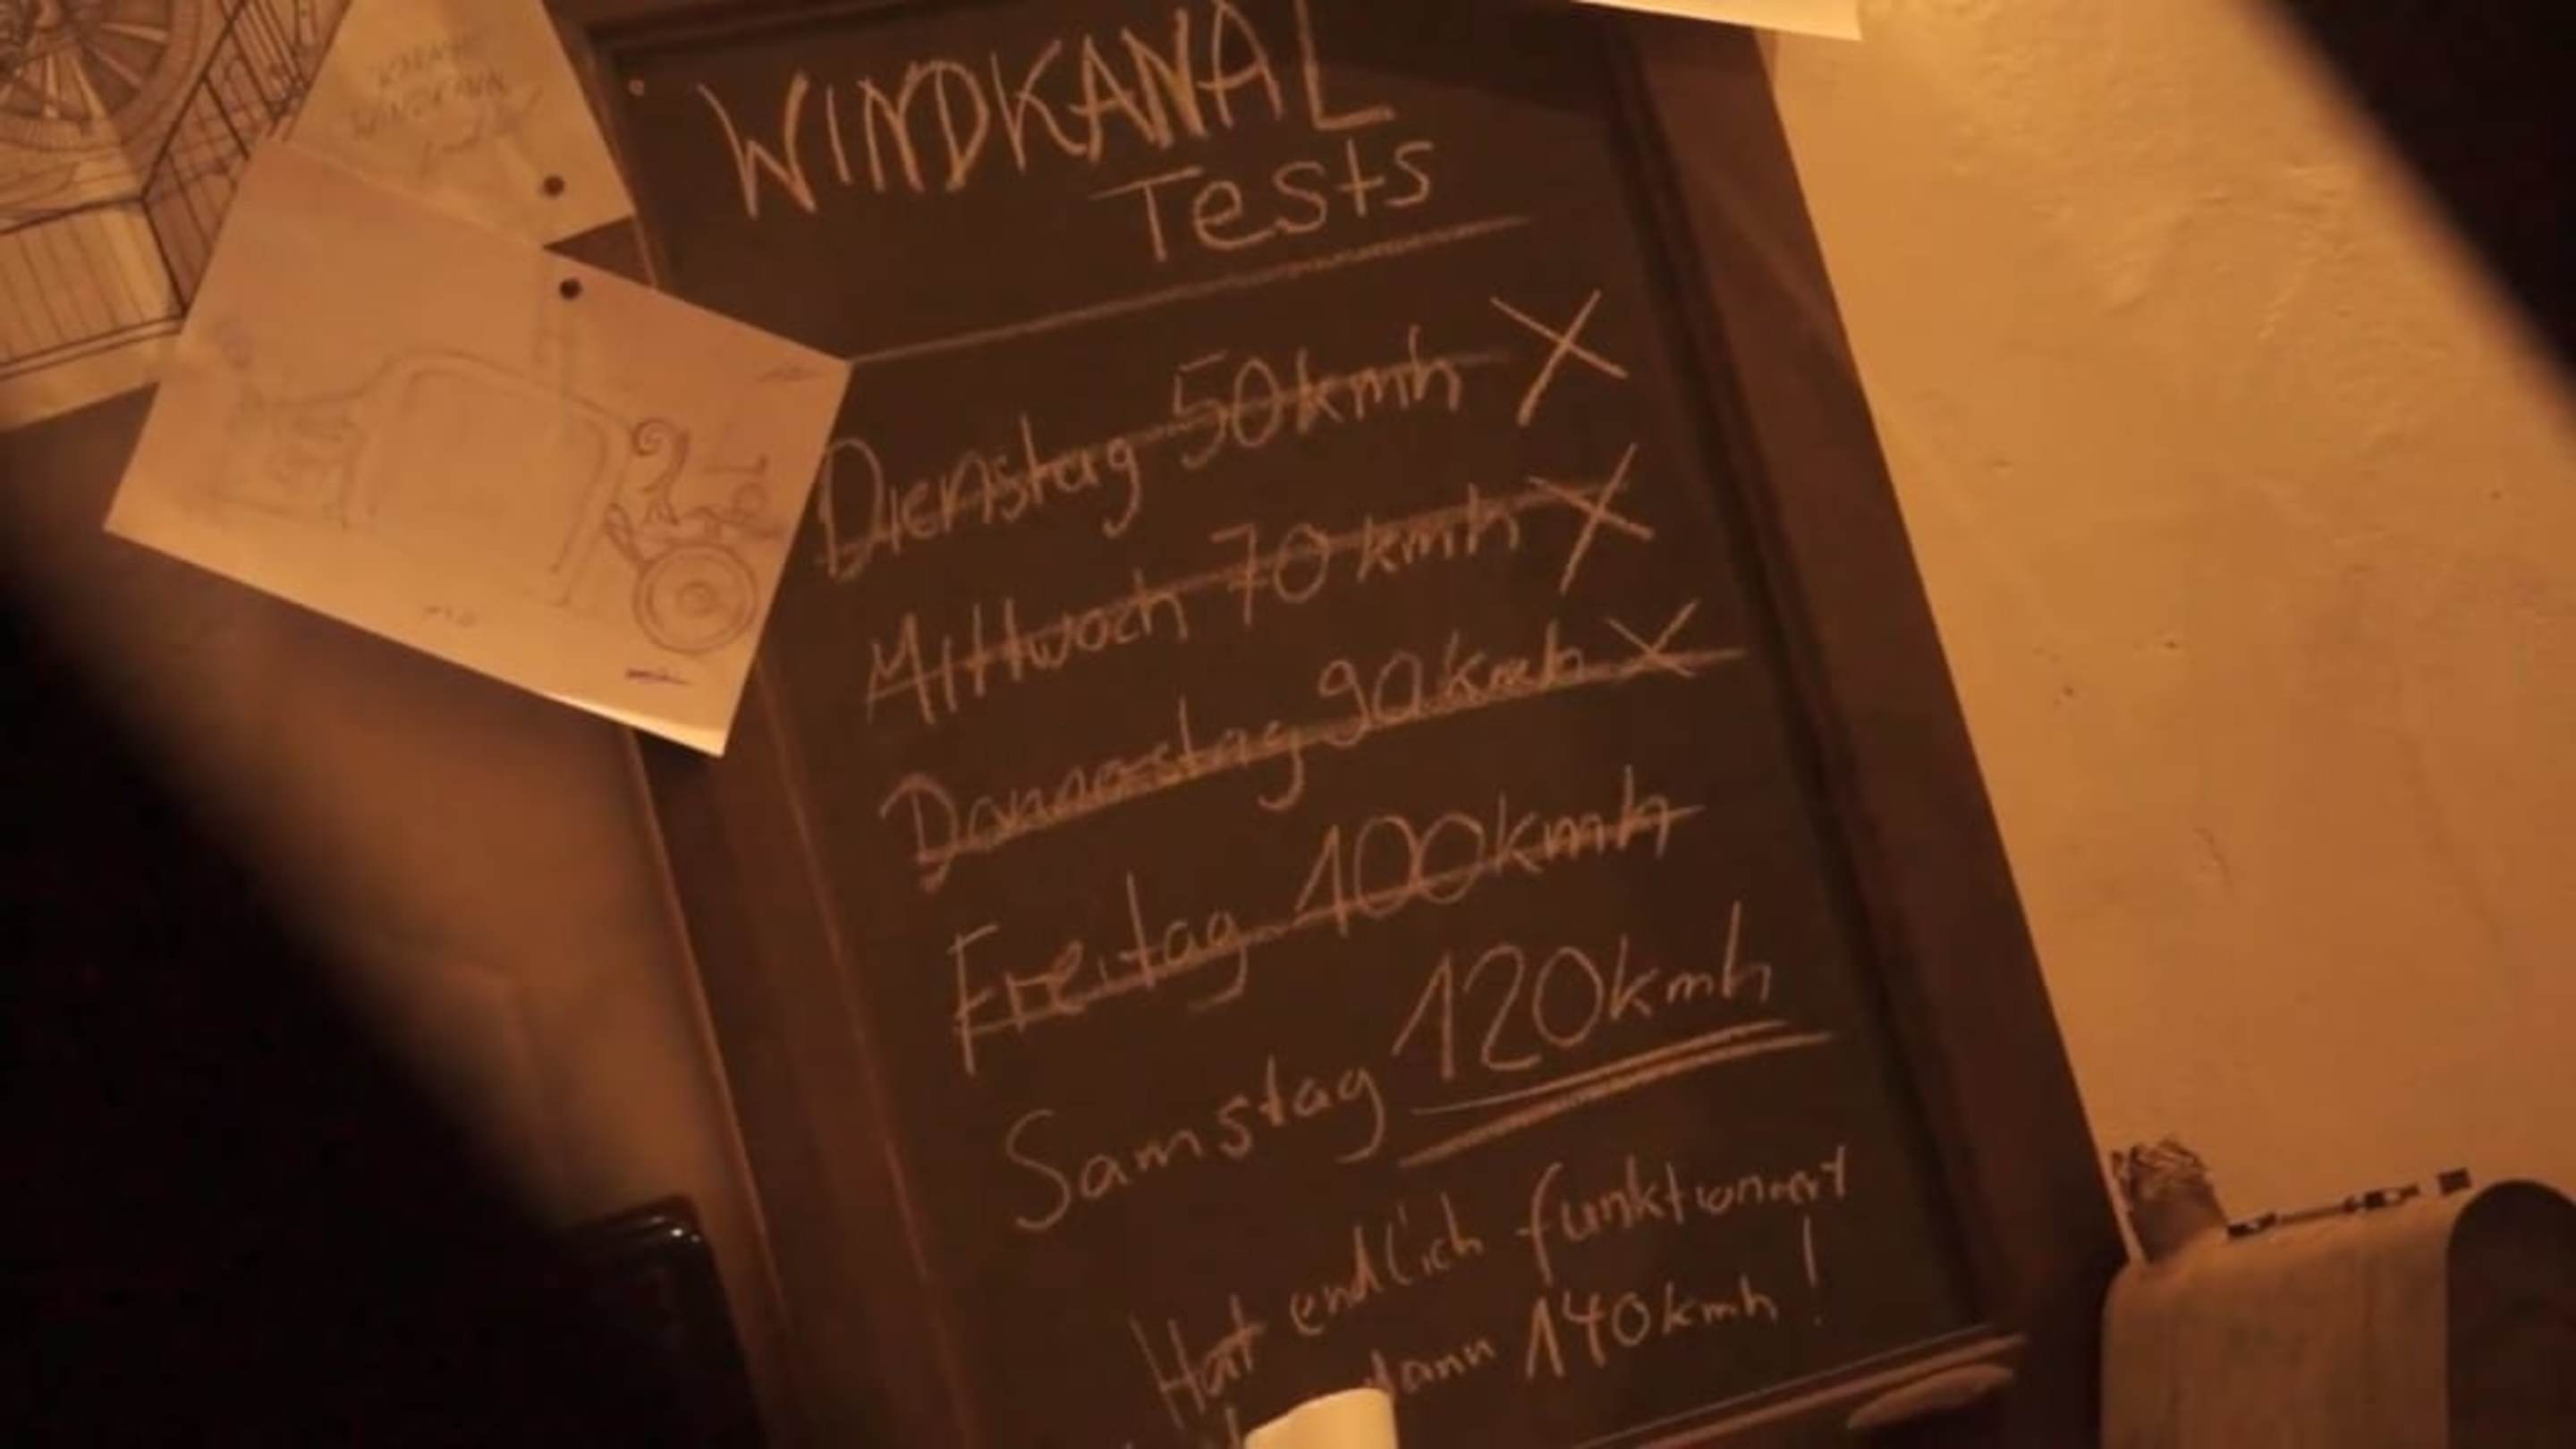 WINDKANAL
Tests
Dienstag 50kmh X
Mittwoch 70 kmh X
Donnerstag 90kmh X
Freitag 100kmh
Samstag 120kmh
Hat endlich funktioniert
dann 140kmh!